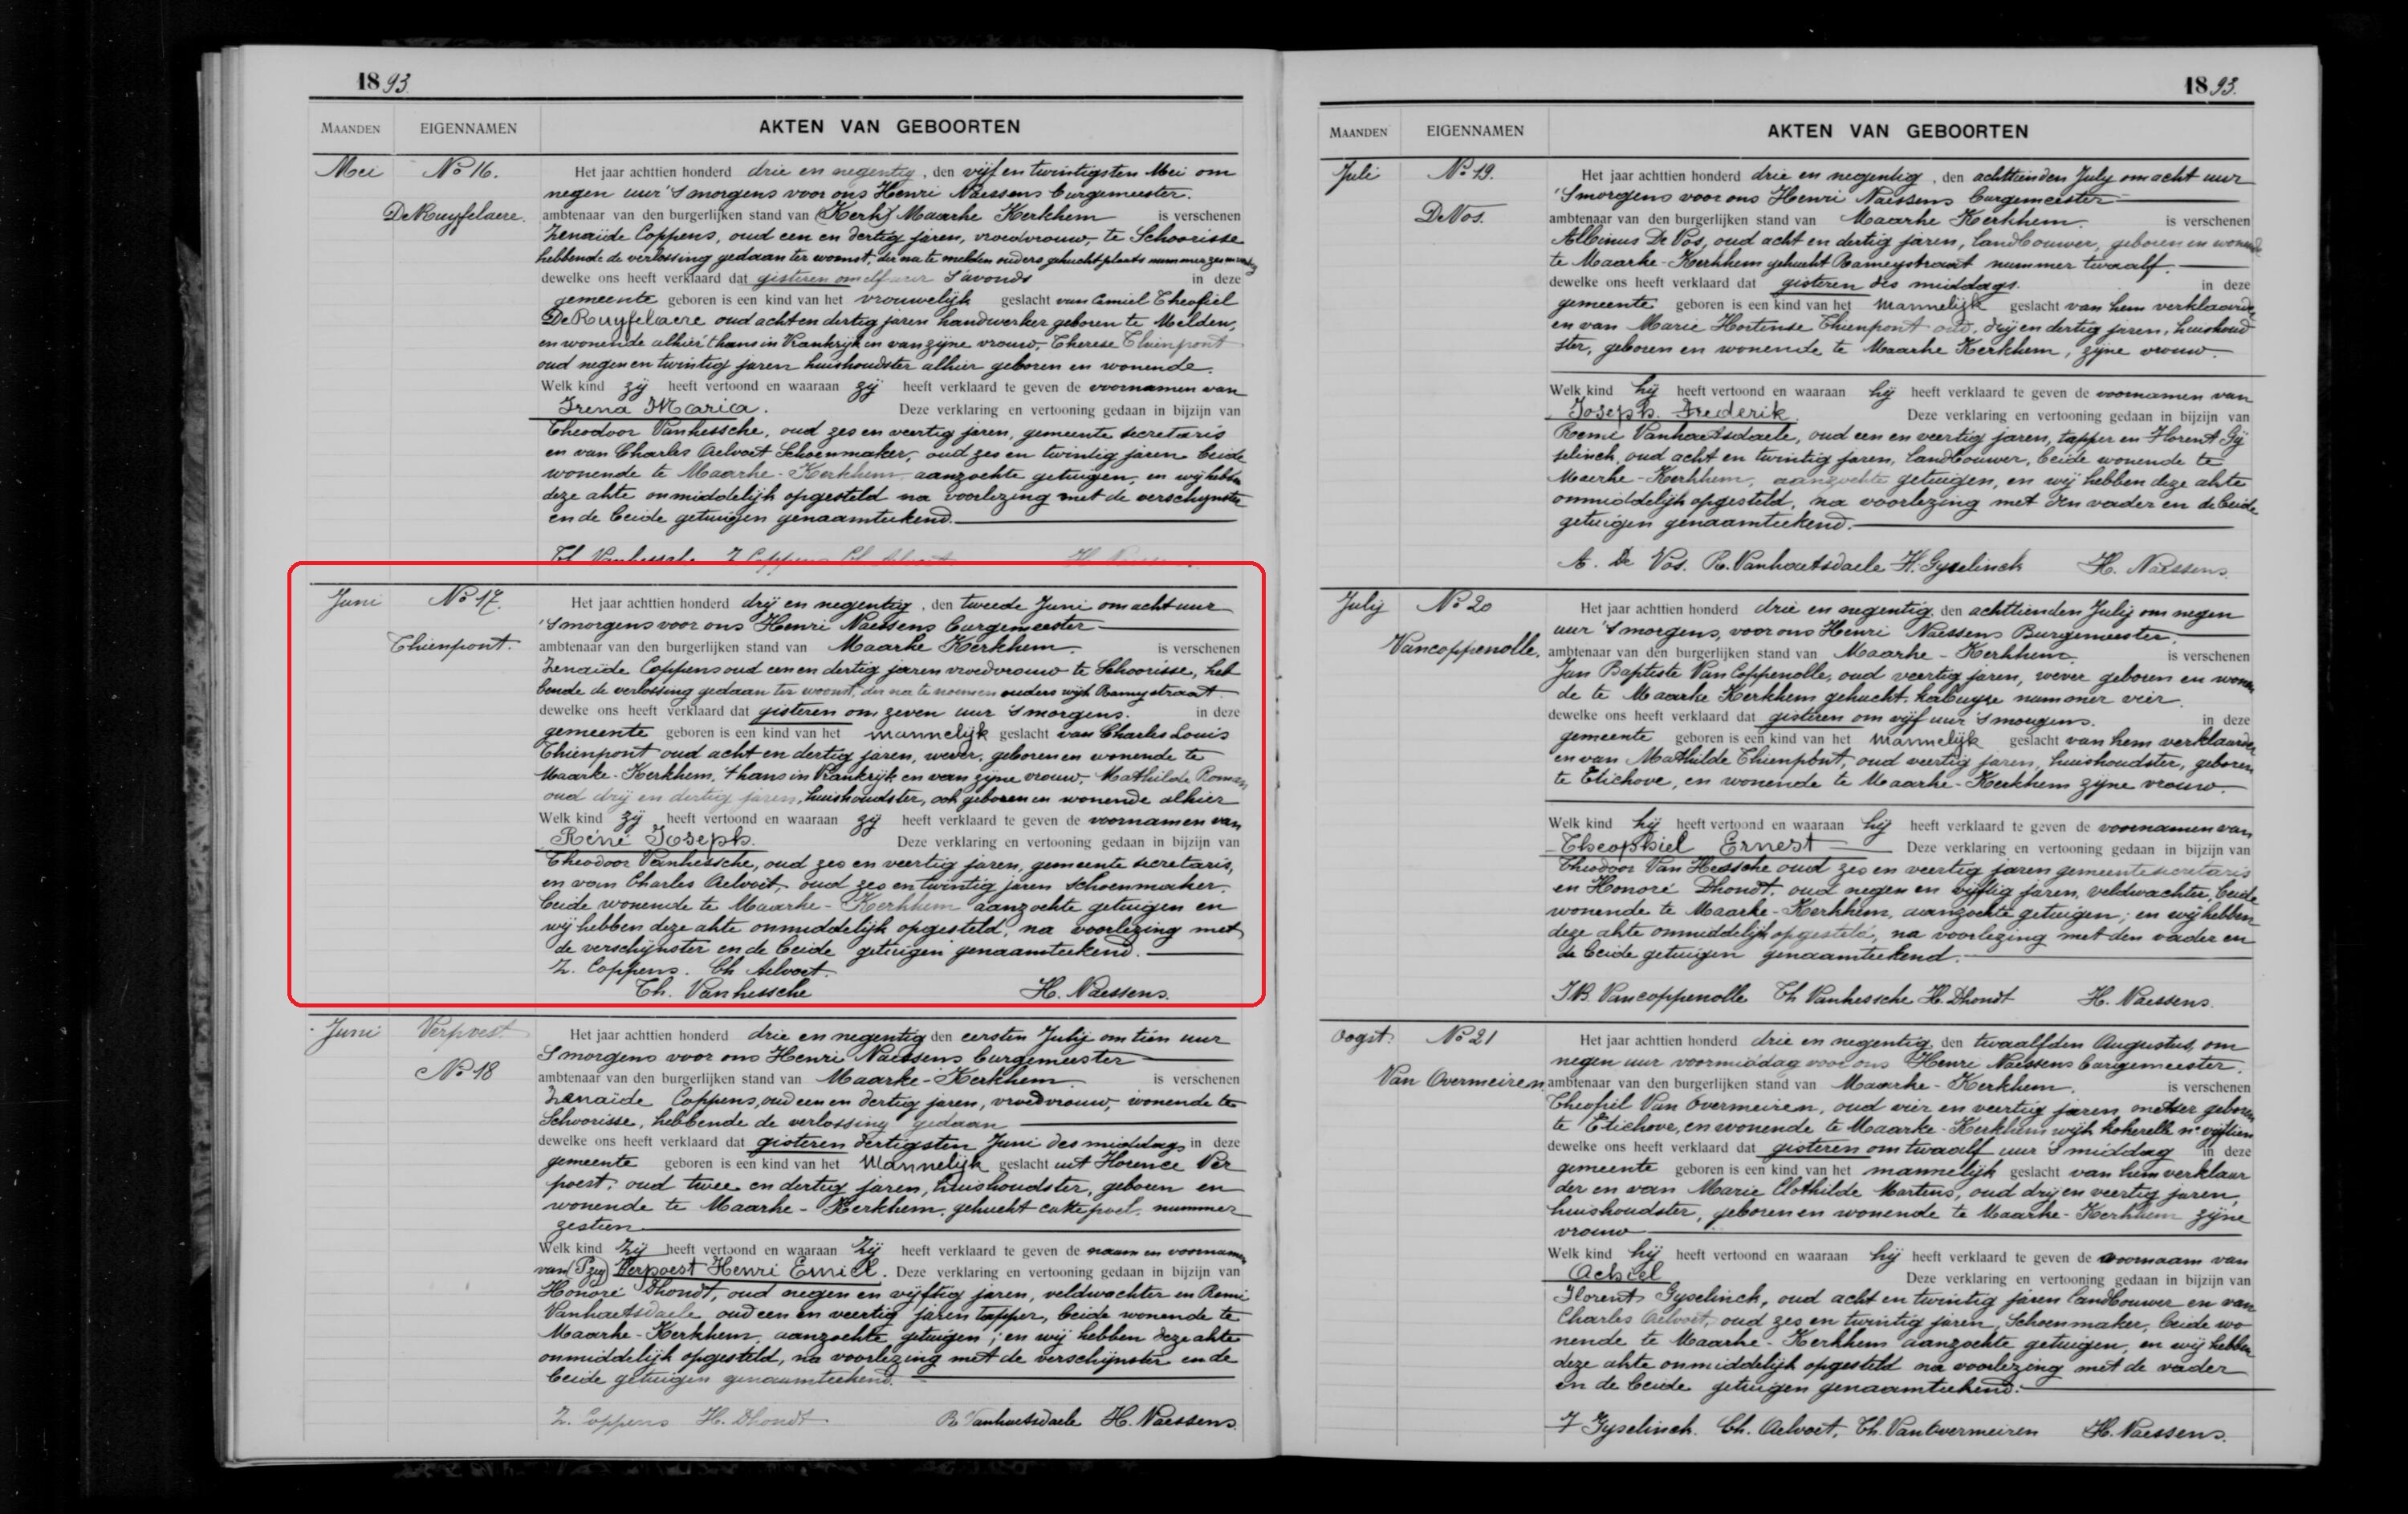 1893.
MAANDEN EIGENNAMEN AKTEN VAN GEBOORTEN
Mei No 16. Het jaar achttien honderd drie en negentig, den vijf en twintigsten Mei om
negen uur 'S morgens voor ons Henri Naessens burgemeester.
DeRuyfelaere. ambtenaar van den burgerlijken stand van (Kerk) Maarke Kerkhem is verschenen
Zenaïde Coppens, oud een en dertig jaren, vroedvrouw, te Schoorisse
hebbende de verlossing gedaan ter woonst, der na te melden ouders gehucht plaats nummer
dewelke ons heeft verklaard dat gisteren om elf uur S'avonds in deze
gemeente geboren is een kind van het vrouwelijk geslacht van Camiel Theofiel
DeRuyfelaere oud acht en dertig jaren handwerker geboren te Melden,
en wonende alhier thans in Vrankrijk en van zijne vrouw, Therese Thienpont
oud negen en twintig jaren huishoudster alhier geboren en wonende.
Welk kind zij heeft vertoond en waaraan zij heeft verklaard te geven de voornamen van
Irena Maria. Deze verklaring en vertooning gedaan in bijzijn van
Theodoor Vanhessche, oud zes en veertig jaren, gemeente secretaris
en van Charles Aelvoet Schoenmaker, oud zes en twintig jaren beide
wonende te Maarke-Kerkhem aanzochte getuigen, en wij hebben
deze akte onmiddelijk opgesteld na voorlezing met de verschijnster
en de beide getuigen genaamteekend.
Th. Vanhessche Z Coppens Ch Aelvoet H. Naessens.
Juni No 17. Het jaar achttien honderd drij en negentig, den tweede Juni om acht uur
'S morgens voor ons Henri Naessens burgemeester
Thienpont. ambtenaar van den burgerlijken stand van Maarke Kerkhem. is verschenen
Zenaïde Coppens oud een en dertig jaren vroedvrouw te Schoorisse, heb
bende de verlossing gedaan ter woonst, der na te noemen ouders wijk Rameystraat
dewelke ons heeft verklaard dat gisteren om zeven uur 's morgens. in deze
gemeente geboren is een kind van het mannelijk geslacht van Charles Louis
Thienpont oud acht en dertig jaren, wever, geboren en wonende te
Maarke-Kerkhem, thans in Vrankrijk en van zijne vrouw, Mathilde Roman
oud drij en dertig jaren, huishoudster, ook geboren en wonende alhier
Welk kind zij heeft vertoond en waaraan zij heeft verklaard te geven de voornamen van
Réné Joseph. Deze verklaring en vertooning gedaan in bijzijn van
Theodoor Vanhessche, oud zes en veertig jaren, gemeente secretaris,
en van Charles Aelvoet, oud zes en twintig jaren schoenmaker,
beide wonende te Maarke-Kerkhem aanzochte getuigen en
wij hebben deze akte onmiddelijk opgesteld, na voorlezing met
de verschijnster en de beide getuigen genaamteekend.
Z. Coppens. Ch Aelvoet.
Th. Vanhessche H. Naessens.
Juni Verpoest Het jaar achttien honderd drie en negentig den eersten Julij om tien uur
S morgens voor ons Henri Naessens burgemeester
No 18 ambtenaar van den burgerlijken stand van Maarke-Kerkhem. is verschenen
Zenaïde Coppens, oud een en dertig jaren, vroedvrouw, wonende te
Schoorisse, hebbende de verlossing gedaan
dewelke ons heeft verklaard dat gisteren dertigsten Juni des middags in deze
gemeente geboren is een kind van het Mannelijk geslacht uit Florence Ver
poest, oud twee en dertig jaren, huishoudster, geboren en
wonende te Maarke-Kerkhem, gehucht cattepoel, nummer
zestien
Welk kind Zij heeft vertoond en waaraan Zij heeft verklaard te geven de naam en voornamen
van Verpoest Henri Emiel. Deze verklaring en vertooning gedaan in bijzijn van
Honoré Dhondt, oud negen en vijftig jaren, veldwachter en Remi
Vanhaetsdaele oud een en veertig jaren tapper, beide wonende te
Maarke-Kerkhem, aanzochte getuigen; en wij hebben deze akte
onmiddelijk opgesteld, na voorlezing met de verschijnster en de
beide getuigen genaamteekend.
Z. Coppens H. Dhondt R Vanhaetsdaele H. Naessens.
1893.
MAANDEN EIGENNAMEN AKTEN VAN GEBOORTEN
Juli No 19. Het jaar achttien honderd drie en negentig, den achttienden July om acht uur
'S morgens voor ons Henri Naessens burgemeester
DeVos. ambtenaar van den burgerlijken stand van Maarke Kerkhem. is verschenen
Albinus De Vos, oud acht en dertig jaren, landbouwer, geboren en wonende
te Maarke-Kerkhem gehucht Rameystraat nummer twaalf.
dewelke ons heeft verklaard dat gisteren des middags. in deze
gemeente geboren is een kind van het Mannelijk geslacht van hem verklaarder
en van Marie Hortense Thienpont oud, drij en dertig jaren, huishoud
ster, geboren en wonende te Maarke Kerkhem, zijne vrouw.
Welk kind hij heeft vertoond en waaraan hij heeft verklaard te geven de voornamen van
Joseph. Frederik. Deze verklaring en vertooning gedaan in bijzijn van
Remi Vanhaetsdaele, oud een en veertig jaren, tapper en Florent Gy
selinck, oud acht en twintig jaren, landbouwer, beide wonende te
Maarke-Kerkhem, aanzochte getuigen, en wij hebben deze akte
onmiddelijk opgesteld, na voorlezing met den vader en de beide
getuigen genaamteekend.
A. De Vos. R. Vanhaetsdaele F. Gyselinck H. Naessens.
July No 20 Het jaar achttien honderd drie en negentig, den achttienden Julij om negen
uur 'S morgens, voor ons Henri Naessens Burgemeester.
Vancoppenolle. ambtenaar van den burgerlijken stand van Maarke-Kerkhem. is verschenen
Jan Baptiste Van Coppenolle, oud veertig jaren, wever geboren en wonen
de te Maarke Kerkhem gehucht kabuyze nummer vier.
dewelke ons heeft verklaard dat gisteren om vijf uur 's morgens. in deze
gemeente geboren is een kind van het Mannelijk geslacht van hem verklaarder
en van Mathilde Thienpont, oud veertig jaren, huishoudster, geboren
te Etichove, en wonende te Maarke-Kerkhem zijne vrouw.
Welk kind hij heeft vertoond en waaraan hij heeft verklaard te geven de voornamen van
Theophiel Ernest Deze verklaring en vertooning gedaan in bijzijn van
Theodoor Van Hessche oud zes en veertig jaren gemeentesecretaris
en Honoré Dhondt, oud negen en vijftig jaren, veldwachter, beide
wonende te Maarke-Kerkhem, aanzochte getuigen; en wij hebben
deze akte onmiddelijk opgesteld, na voorlezing met den vader en
de beide getuigen genaamteekend.
JB. Vancoppenolle Th Vanhessche H. Dhondt H. Naessens.
Oogst. No 21 Het jaar achttien honderd drie en negentig, den twaalfden Augustus, om
negen uur voormiddag voor ons Henri Naessens burgemeester.
Van Overmeiren. ambtenaar van den burgerlijken stand van Maarke-Kerkhem. is verschenen
Theofiel Van Overmeiren, oud vier en veertig jaren, metser geboren
te Etichove, en wonende te Maarke-Kerkhem wijk kokerelle no vijftien
dewelke ons heeft verklaard dat gisteren om twaalf uur 's middag in deze
gemeente geboren is een kind van het mannelijk geslacht van hem verklaar
der en van Marie Clothilde Martens, oud drij en veertig jaren,
huishoudster, geboren en wonende te Maarke-Kerkhem zijne
vrouw
Welk kind hij heeft vertoond en waaraan hij heeft verklaard te geven de voornaam van
Achiel Deze verklaring en vertooning gedaan in bijzijn van
Florent Gyselinck, oud acht en twintig jaren landbouwer en van
Charles Aelvoet, oud zes en twintig jaren, Schoenmaker, beide wo
nende te Maarke-Kerkhem aanzochte getuigen, en wij hebben
deze akte onmiddelijk opgesteld na voorlezing met de vader
en de beide getuigen genaamteekend.
F Gyselinck. Ch. Aelvoet, Th. Van Overmeiren H. Naessens.